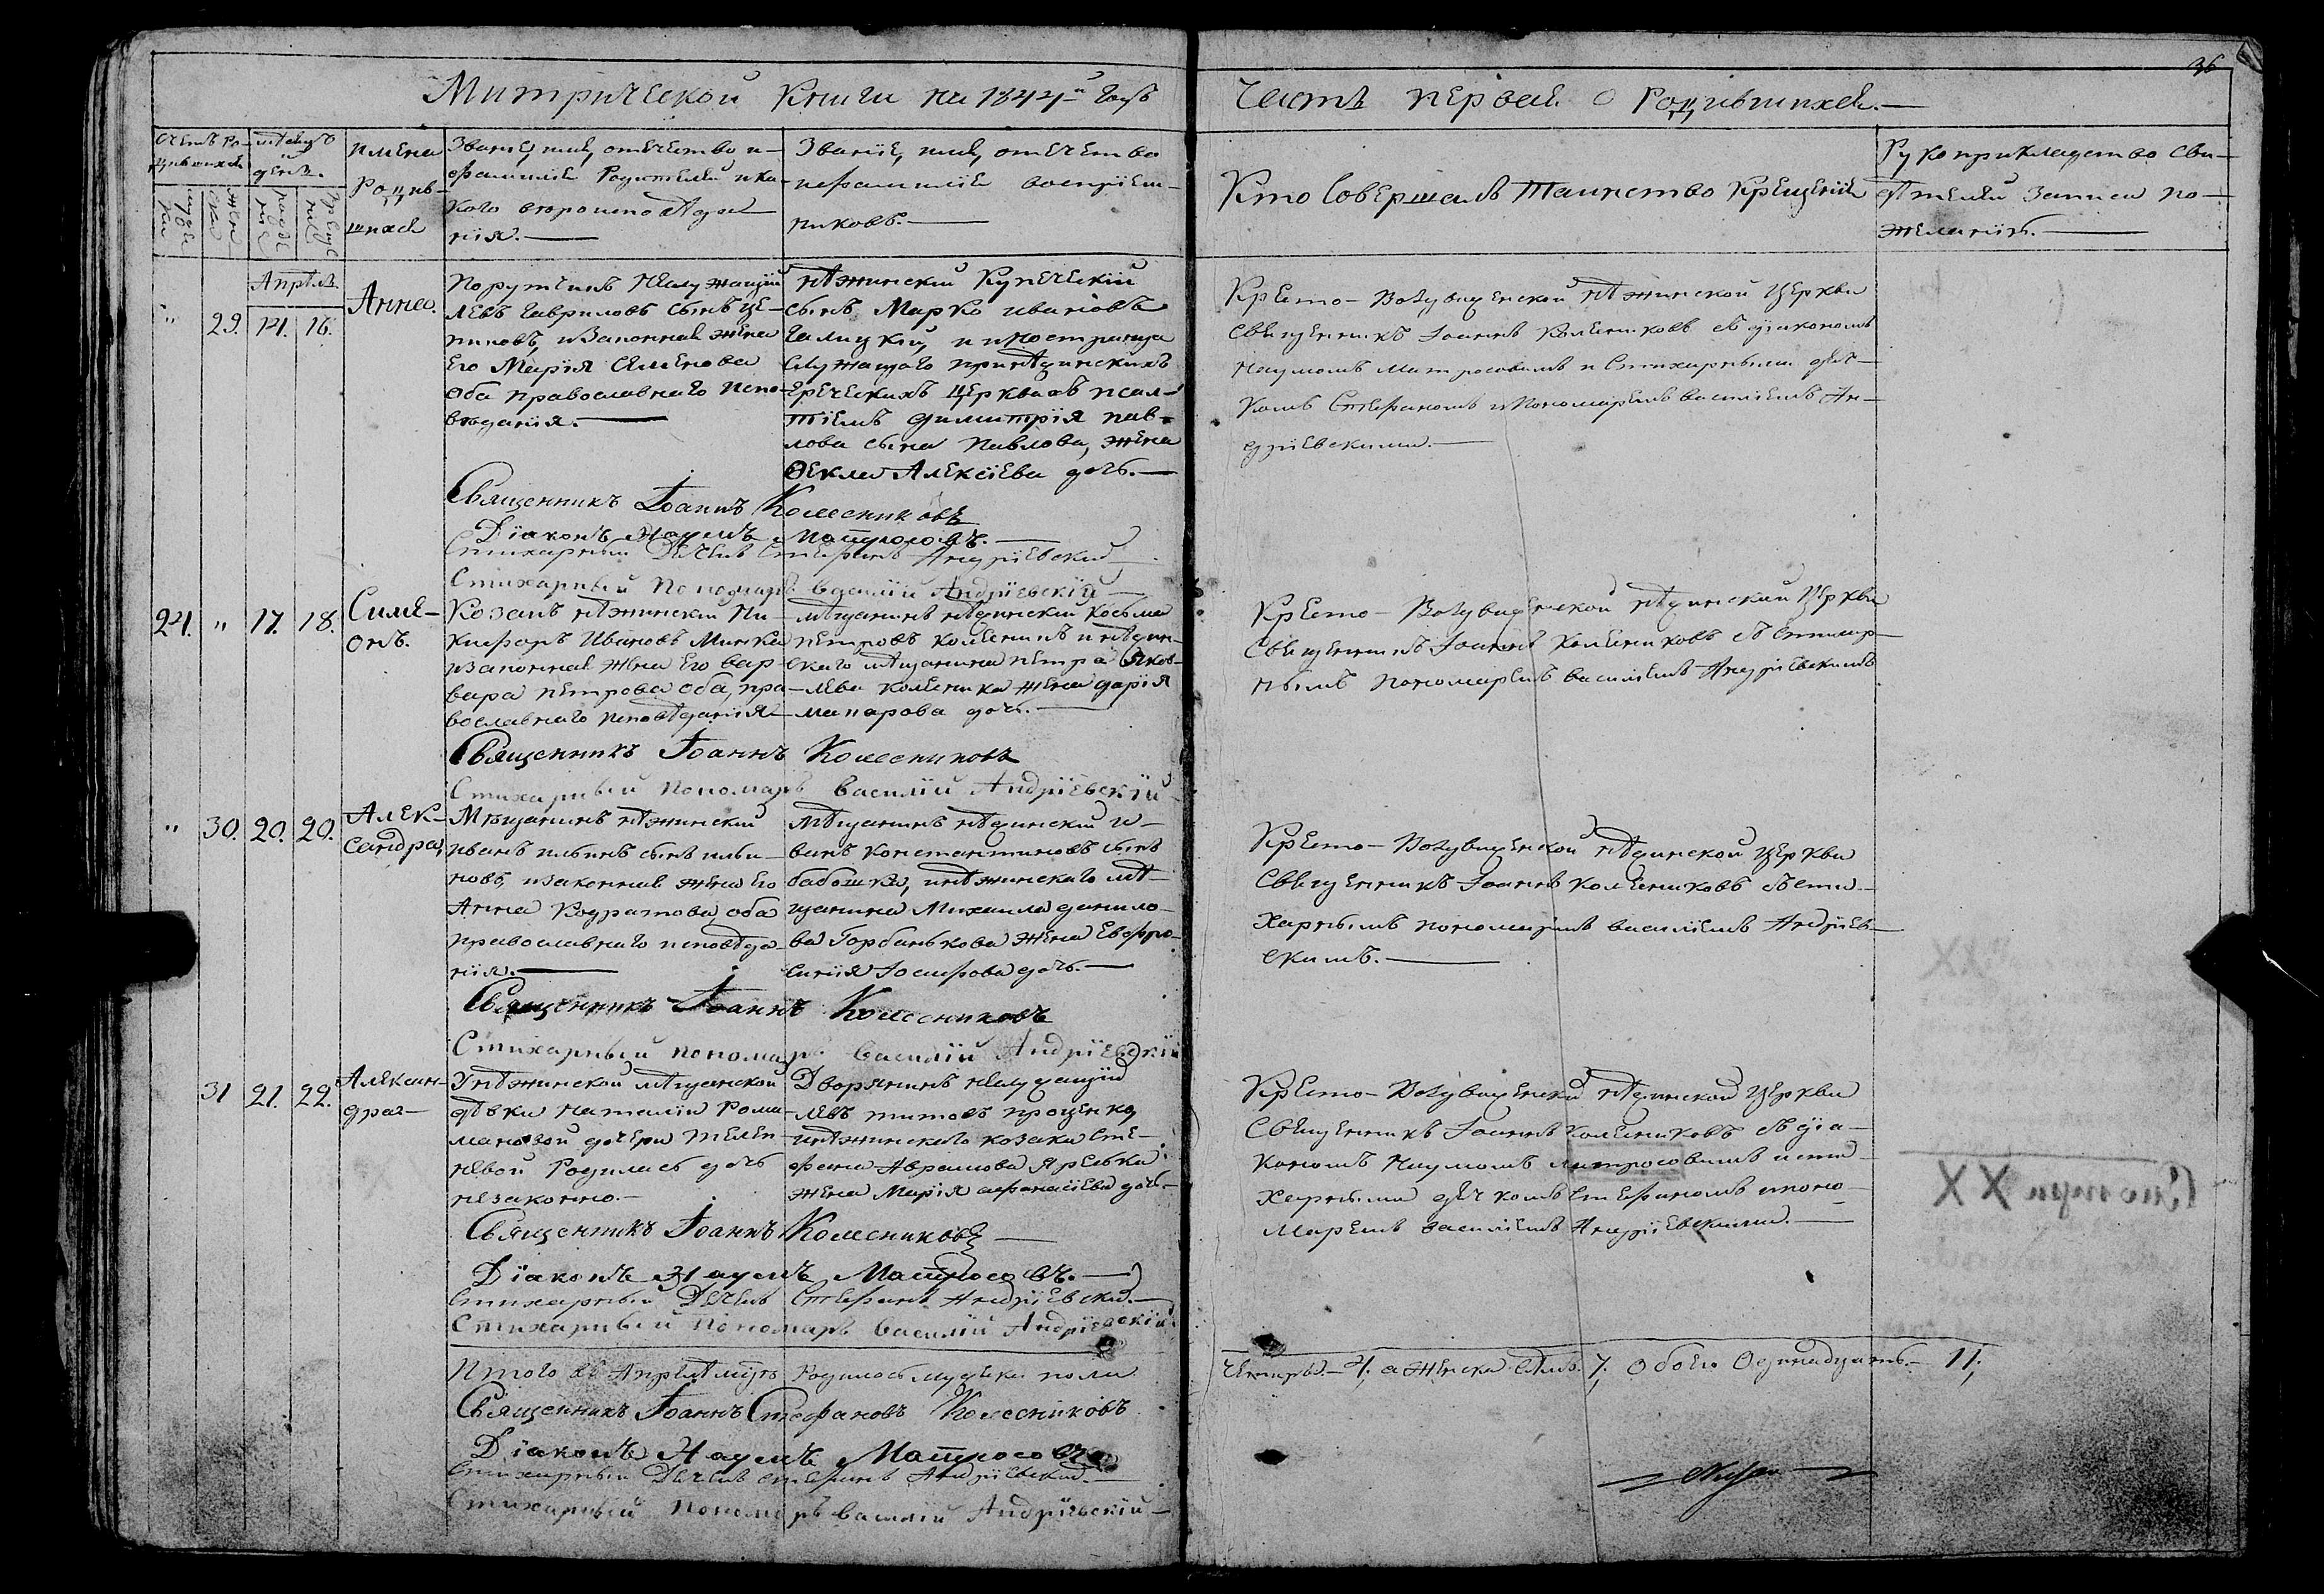 36
Митрической Книги на 1844й Годъ
Часть первая о Родившихся.—
Счетъ Ро-
дившихся
мужеска
женска
мѣсяцъ
и
день.
рожденія
Крещенія
Имена
Родив-
шихся
Званіе, имя, отечество и
фамилія Родителей и ка-
кого вѣроисповѣда-
нія.—
Званіе, имя, отечество
и фамилія воспріем-
никовъ.—
Кто Совершалъ Таинство Крещенія
Рукоприкладство сви-
дѣтелей записи по
желанію.—
Апрѣля
" 29. 14. 16.
Анна.
Порутчикъ Неслужащій
Левъ Гавриловъ сынъ
и Законная жена
Его Марія Семенова
Оба православнаго испо-
вѣданія.—
нѣжинскій Купеческій
сынъ Марко Ивановъ
Галицкій, и иностранца
Служащаго при нѣжинскихъ
Греческихъ Церквахъ псал-
Димитрія Пав-
лова сына Павлова, жена
Ѳекла Алексіева дочь.—
Кресто-Воздвиженской нѣжинской Церкви
Священникъ Іоаннъ Колесниковъ съ діакономъ
Наумомъ Матросовымъ и Стихарными дяч-
комъ Стефаномъ и Пономаремъ василіемъ Ан-
дріевскими.—
Священникъ Іоаннъ Колесниковъ
Діаконъ Наумъ Матросовъ.—
Стихарный Дячекъ Стефанъ Андріевскій—
Стихарный Пономарь василій Андріевскій—
24. " 17. 18.
Симе-
онъ.
Козакъ нѣжинскій Ни-
кифоръ Ивановъ Минка
и законная жена его вар-
вара петрова оба, пра-
вославнаго исповѣданія—
мѣщанинъ нѣжинскій косьма
петровъ Колесникъ и нѣжин-
скаго мѣщанина петра Яков-
лева колесника жена дарія
макарова дочь.—
Кресто-Воздвиженской нѣжинской Церкви
Священникъ Іоаннъ Колесниковъ съ стихар-
нымъ пономаремъ василіемъ Андріевскимъ
Священникъ Іоаннъ Колесниковъ
Стихарный пономарь василій Андріевскій—
" 30. 20. 20.
Алек-
сандра,
Мѣщанинъ нѣжинскій
иванъ ильинъ сынъ
и законная жена его
Анна Кодратова, оба
православнаго исповѣда-
нія.—
мѣщанинъ нѣжинскій и-
ванъ константиновъ сынъ
бабошка, и нѣжинскаго мѣ-
щанина Михаила данило-
ва Горбанькова жена Евфро-
синія Іосифова дочь.—
Кресто-Воздвиженской нѣжинской Церкви
Священникъ Іоаннъ Колесниковъ съ сти-
харнымъ пономаремъ василіемъ Андріев-
скимъ.—
Священникъ Іоаннъ Колесниковъ
Стихарный пономарь василій Андріевскій
31 21. 22.
Алексан-
дра—
У нѣжинской мѣщанской
дѣвки Наталіи Рома-
мановой дочери
Родилась дочь
незаконно.—
Дворянинъ неслужащій
левъ титовъ проценко,
и нѣжинскаго козака Сте-
фана Аврамова Яреська
жена Марія афанасіева дочь.—
Кресто-Воздвиженской нѣжинской Церкви
Священникъ Іоаннъ Колесниковъ съ діа-
кономъ Наумомъ матросовымъ и сти-
харными дячкомъ Стефаномъ и поно-
маремъ василіемъ Андріевскими.—
Священникъ Іоаннъ Колесниковъ—
Діаконъ Наумъ Матросовъ.—
Стихарный Дячекъ Стефанъ Андріевскій.—
Стихарный Пономарь василій Андріевскій
Итого въ Апрелѣ мцѣ Родилось мужска пола
четыре.— 4; а женска семь. 7; обоего Одинадцать.— 11;
Священникъ Іоаннъ Стефановъ Колесниковъ
Діаконъ Наумъ Матросовъ
Стихарный Дячекъ стефанъ Андріевскій.—
Стихарный Пономарь василій Андріевскій—